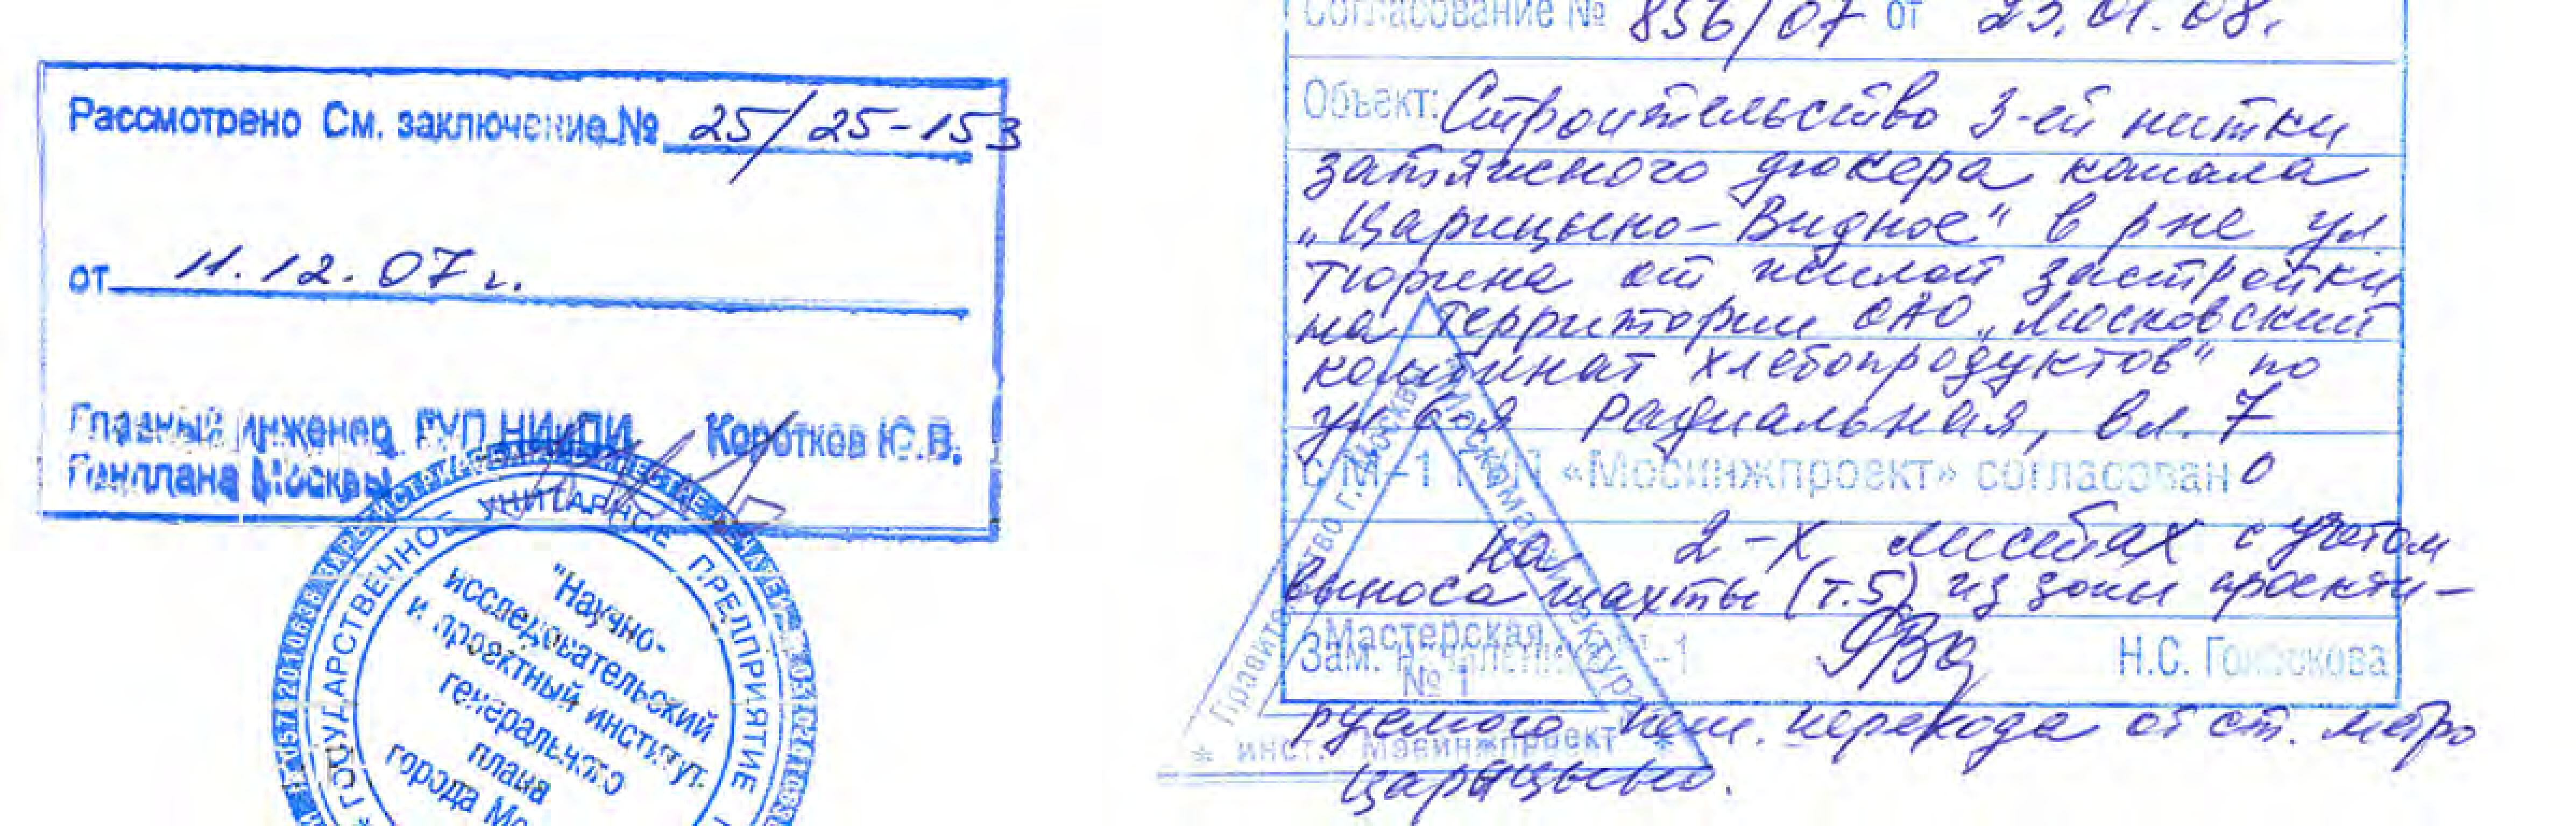 Рассмотрено См. заключение № 25/25-153
от 11.12.07г.
Главный инженер ГУП НИиПИ Коротков Ю.В.
Генплана Москвы
ГОСУДАРСТВЕННОЕ УНИТАРНОЕ ПРЕДПРИЯТИЕ
"Научно-
исследовательский
и проектный институт
генерального
плана
города Мо
Согласование № 856/07 от 23.01.08.
Объект: Строительство 3-ей нитки
затяжного дюкера канала
„Царицыно-Видное" в р-не ул
Тюрина от жилой застройки
на территории ОАО „Московский
комбинат хлебопродуктов" по
ул 6-я Радиальная, вл. 7
с М-1 ГУП «Мосинжпроект» согласовано
на 2-х листах с учетом
выноса шахты (т.5) из зоны проекти-
Зам. начальника М-1 Н.С.
руемого пеш. перехода от ст. метро
Царицыно.
Правительство г. Москвы
Москомархитектура
* инст. Мосинжпроект *
Мастерская
№ 1